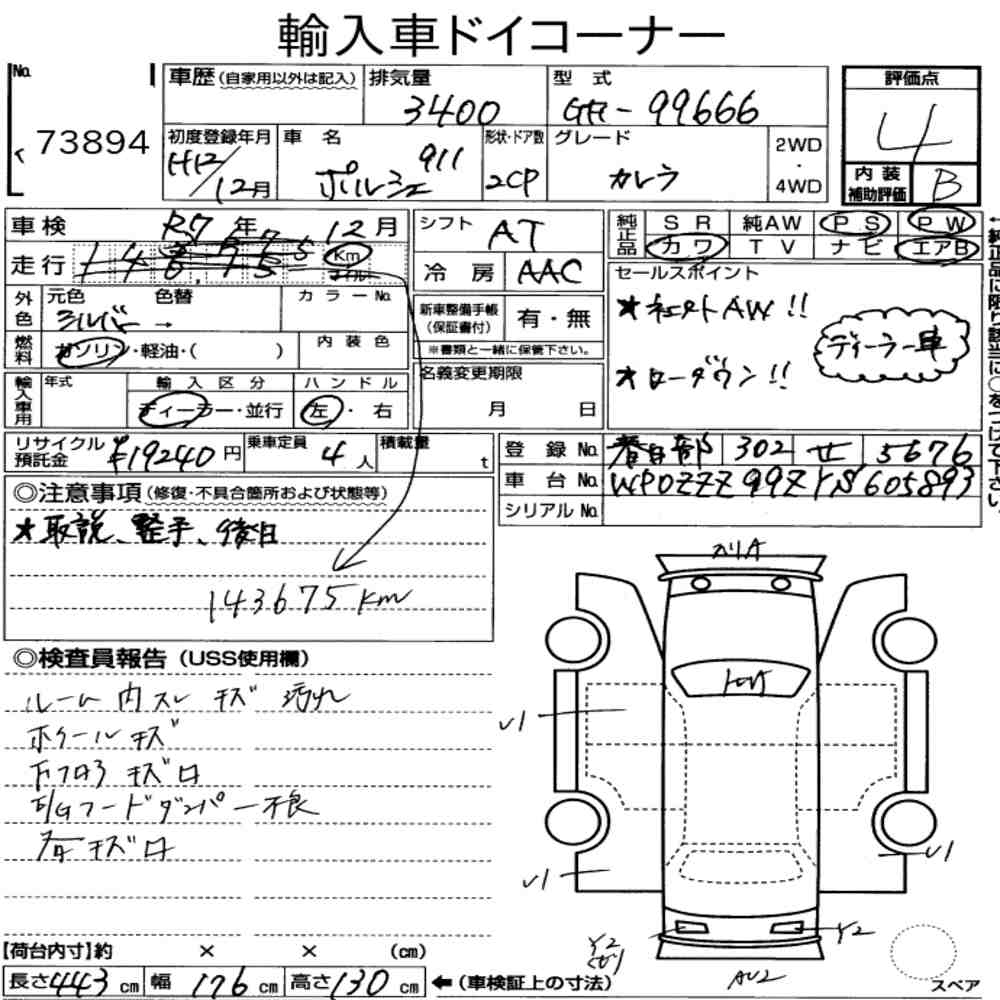 輸入車ドイコーナー
No. 73894
車歴(自家用以外は記入)
排気量 3400
型式 GH-99666
評価点 4
初度登録年月 H12/12月
車名 ポルシェ 911
形状・ドア数 2CP
グレード カレラ
2WD・4WD
内装補助評価 B
車検 R7年12月
シフト AT
純正品 SR 純AW PS PW
カワ TV ナビ エアB
走行 Km マイル
冷房 AAC
セールスポイント
★ AW!!
★ローダウン!!
ディーラー車
外色 元色 シルバー 色替 → カラーNo.
新車整備手帳(保証書付) 有・無
※書類と一緒に保管下さい。
燃料 ガソリン・軽油・( ) 内装色
名義変更期限 月 日
輸入車用 年式 輸入区分 ハンドル
ディーラー・並行 左・右
←純正品に限り該当に○をつけて下さい。
リサイクル預託金 ¥19240円
乗車定員 4人
積載量 t
登録No. 春日部 302 せ 5676
車台No. WP0ZZZ99ZYS605893
シリアルNo.
◎注意事項(修復・不具合箇所および状態等)
★取説、整手、後日
143675Km
◎検査員報告(USS使用欄)
ルーム内スレ キズ 汚れ
ホイールキズ
下フロ キズ
E/Gフードダンパー不良
キズ
トひA
U1
U1
U1
Y2
Y2
AU2
【荷台内寸】約 × × (cm)
長さ443cm 幅176cm 高さ130cm ←(車検証上の寸法)
スペア